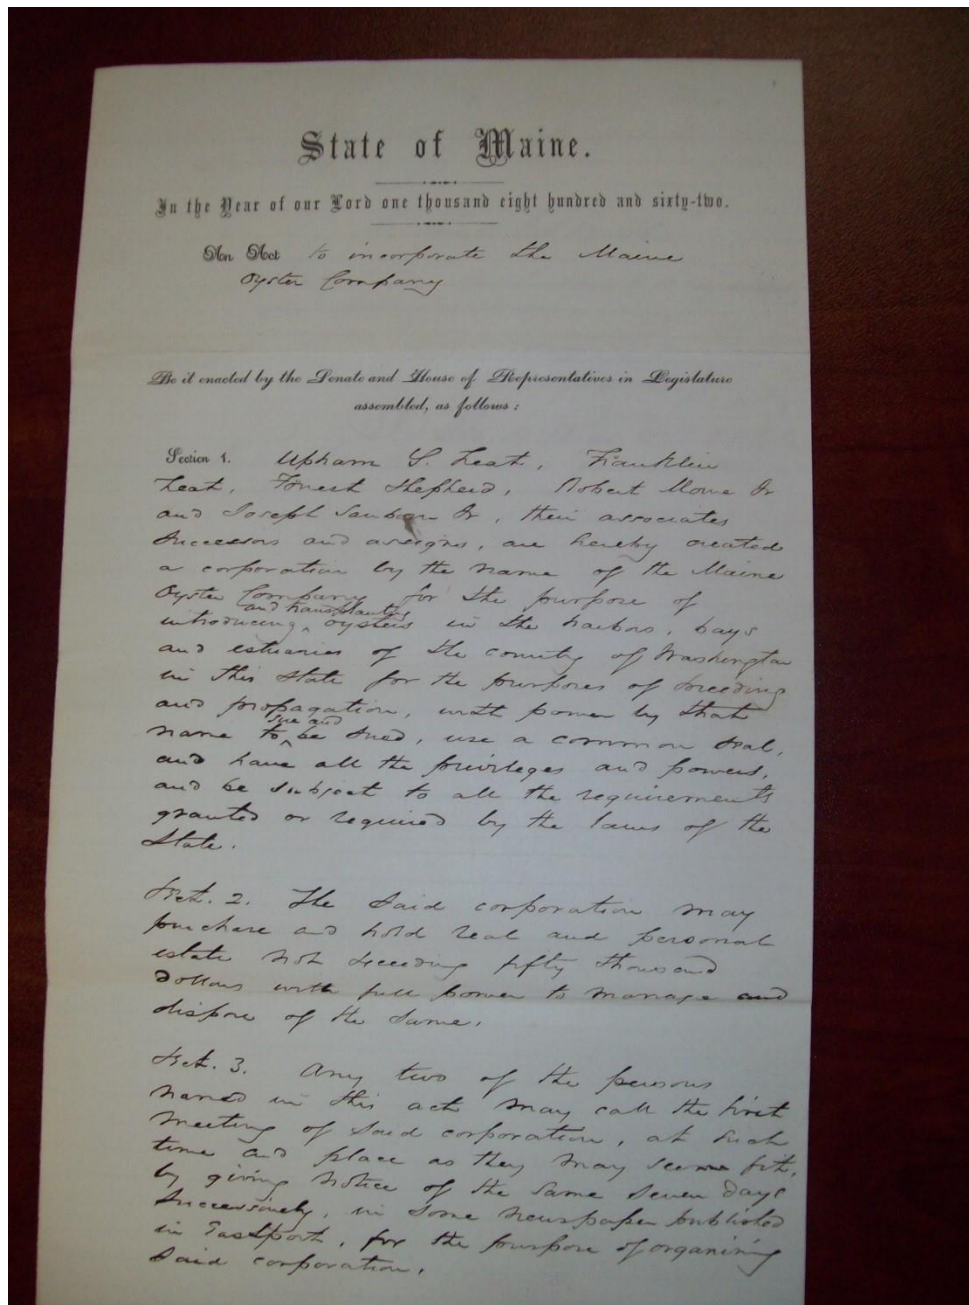 State of Maine.
In the Year of our Lord one thousand eight hundred and sixty-two.
An Act to incorporate the Maine
Oyster Company
Be it enacted by the Senate and House of Representatives in Legislature
assembled, as follows:
Section 1. Upham S. Treat, Franklin
Treat, Ernest Shepherd, Robert Mowe Jr
and Joseph Sanborn Jr, their associates
successors and assigns, are hereby created
a corporation by the name of the Maine
Oyster Company for the purpose of
and transplanting
introducing oysters in the harbors, bays
and estuaries of the county of Washington
in this state for the purposes of breeding
and propagation, with power by that
sue and
name to be sued, use a common seal,
and have all the privileges and powers,
and be subject to all the requirements
granted or required by the laws of the
State.
Sect. 2. The said corporation may
purchase and hold real and personal
estate not exceeding fifty thousand
dollars with full power to manage and
dispose of the same.
Sect. 3. Any two of the persons
named in this act may call the first
meeting of said corporation, at such
time and place as they may fit,
by giving notice of the same seven days
successively, in some newspaper published
in Eastport, for the purpose of organizing
said corporation.